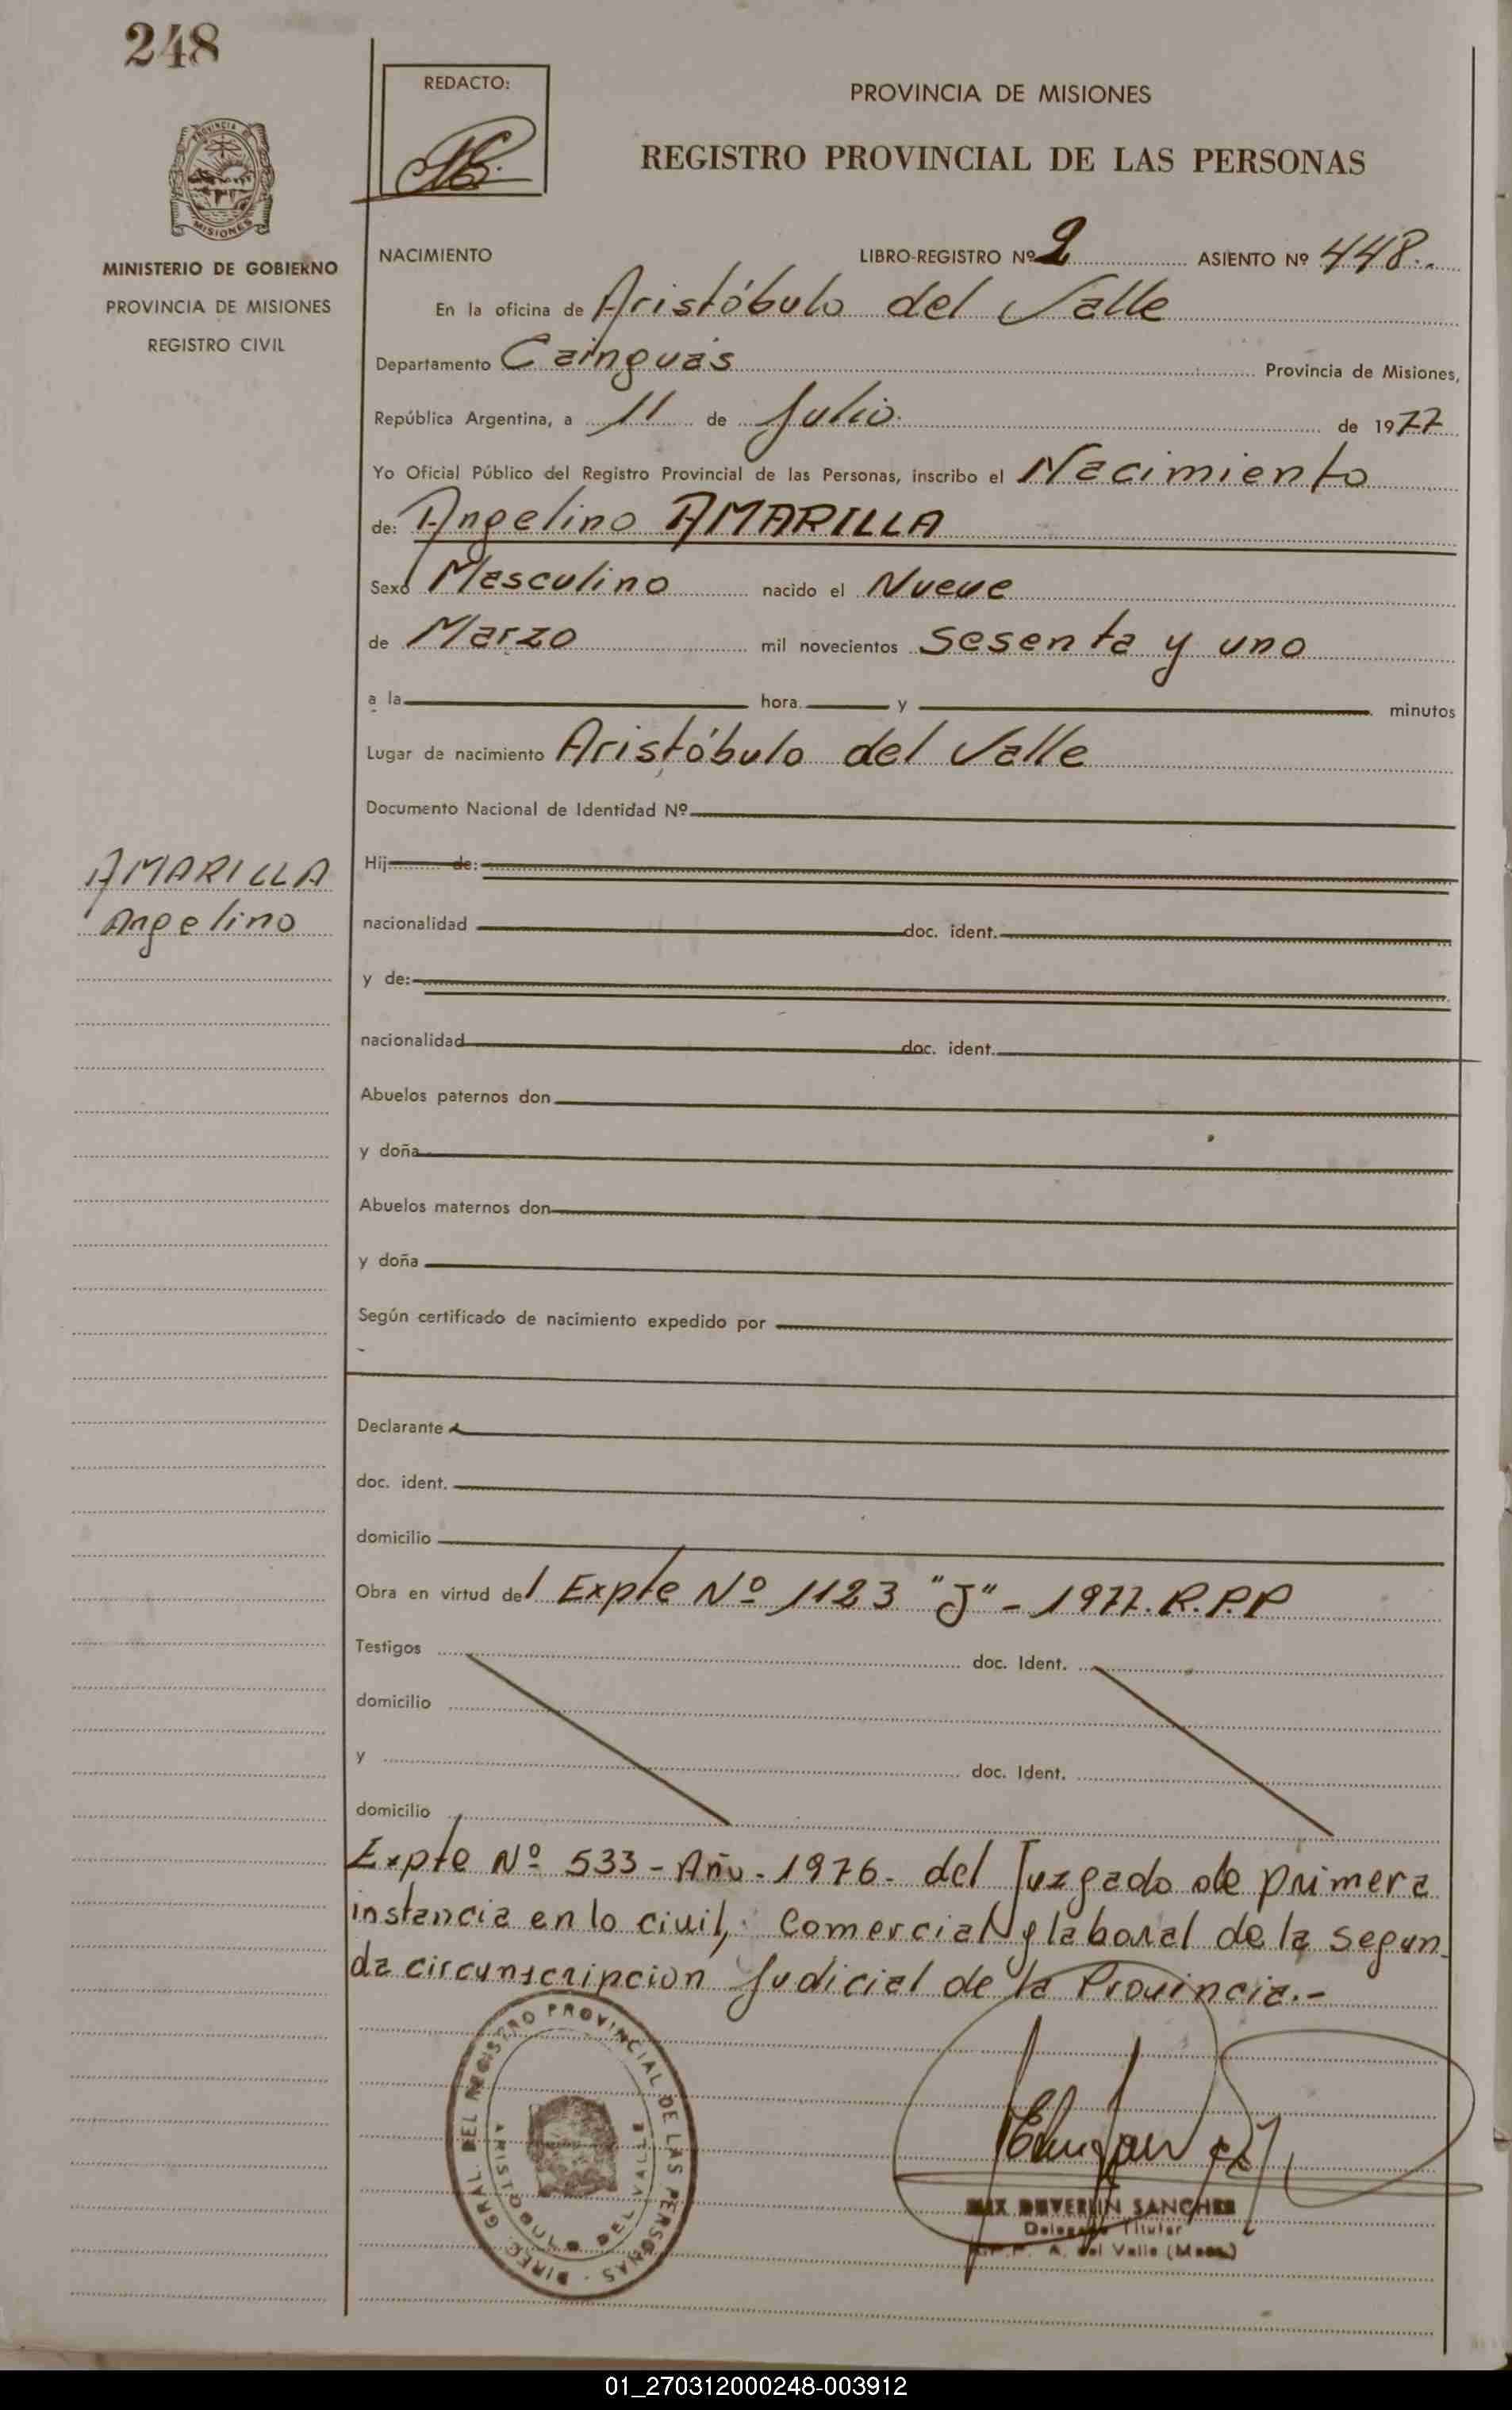 248
REDACTO:
PROVINCIA DE MISIONES
REGISTRO PROVINCIAL DE LAS PERSONAS
PROVINCIA DE
MISIONES
MINISTERIO DE GOBIERNO
PROVINCIA DE MISIONES
REGISTRO CIVIL
NACIMIENTO LIBRO-REGISTRO Nº 2 ASIENTO Nº 448..
En la oficina de Aristóbulo del Valle
Departamento Cainguás Provincia de Misiones,
República Argentina, a 11 de Julio. de 1977
Yo Oficial Público del Registro Provincial de las Personas, inscribo el Nacimiento
de: Angelino AMARILLA
Sexo Masculino nacido el Nueve
de Marzo mil novecientos sesenta y uno
a la hora. y minutos
Lugar de nacimiento Aristóbulo del Valle
Documento Nacional de Identidad Nº
AMARILLA
Angelino
Hij de:
nacionalidad doc. ident.
y de:
nacionalidad doc. ident.
Abuelos paternos don
y doña
Abuelos maternos don
y doña
Según certificado de nacimiento expedido por
Declarante
doc. ident.
domicilio
Obra en virtud del Expte Nº 1123 "J" - 1977. R.P.P
Testigos doc. Ident.
domicilio
y doc. Ident.
domicilio
Expte Nº 533 - Año - 1976 - del Juzgado de primera
instancia en lo civil, Comercial y laboral de la segun-
da circunscripcion Judicial de la Provincia.-
DIREC. GRAL. DEL REGISTRO PROVINCIAL DE LAS PERSONAS
ARISTOBULO DEL VALLE
SANCHEZ
Delegado Titular
A. del Valle (Mnes.)
01_270312000248-003912